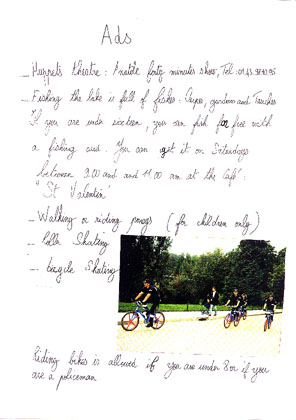 Ads
_ Muppets theatre: A forty minutes show, Tel:
_ Fishing the lake is full of fishes: Carps, gardons and Tanches
If you are under sixteen, you can fish for free with
a fishing card. You can get it on Saturdays
between 9.00 and 11.00 am at the Café:
"St Valentin"
_ Walking or riding poneys (for children only)
_ Roller Skating
_ bicycle Skating
Riding bikes is allowed if you are under 8 or if you
are a policeman